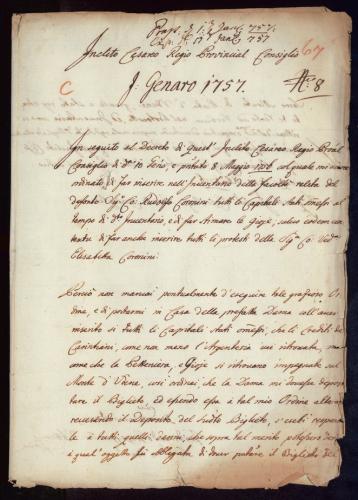 Præs. d. 1. Janr. 757.
Exp. d. 17 Janr. 757
Inclito Cesareo Regio Provincial Consiglio
67
C
P: Genaro 1757.
N: 8
In seguito al Decreto di quest' Inclito Cesareo Regio Provial
Consiglio di 10 , e 8 Maggio 1756 col quale mi viene
ordinato di far inserire nell' Inventario delle facoltà relata del
defonto Sigr Co: Rudolfo Coronini tutti li Capitali stati omessi al
tempo di do Inventario, e di far stimare le Gioje, salvo
di far anche inserire tutti li protesti della Sigra Co: Vedva
Elisabetta Coronini.
Perciò non mancai pontualmente d'eseguire tale grazioso Or
dine, e di portarmi in Casa della prefatta Dama coll'aver
inserito si tutti li Capitali stati omessi, che li Crediti de
Carintiani, come non meno l'Argenteria ivi ritrovata, ma
come che la , e Gioje si ritrovano impegnate sul
Monte di Viena, così ordinai, che la Dama mi dovesse deposi-
tare il Biglietto, ed essendo essa à tal mio Ordine
il Deposito del sudto Biglietto, s'
à tutti quelli danni, che sopra tal merito potessero
à qual' oggetto fù obbligata di dover portare il Biglietto